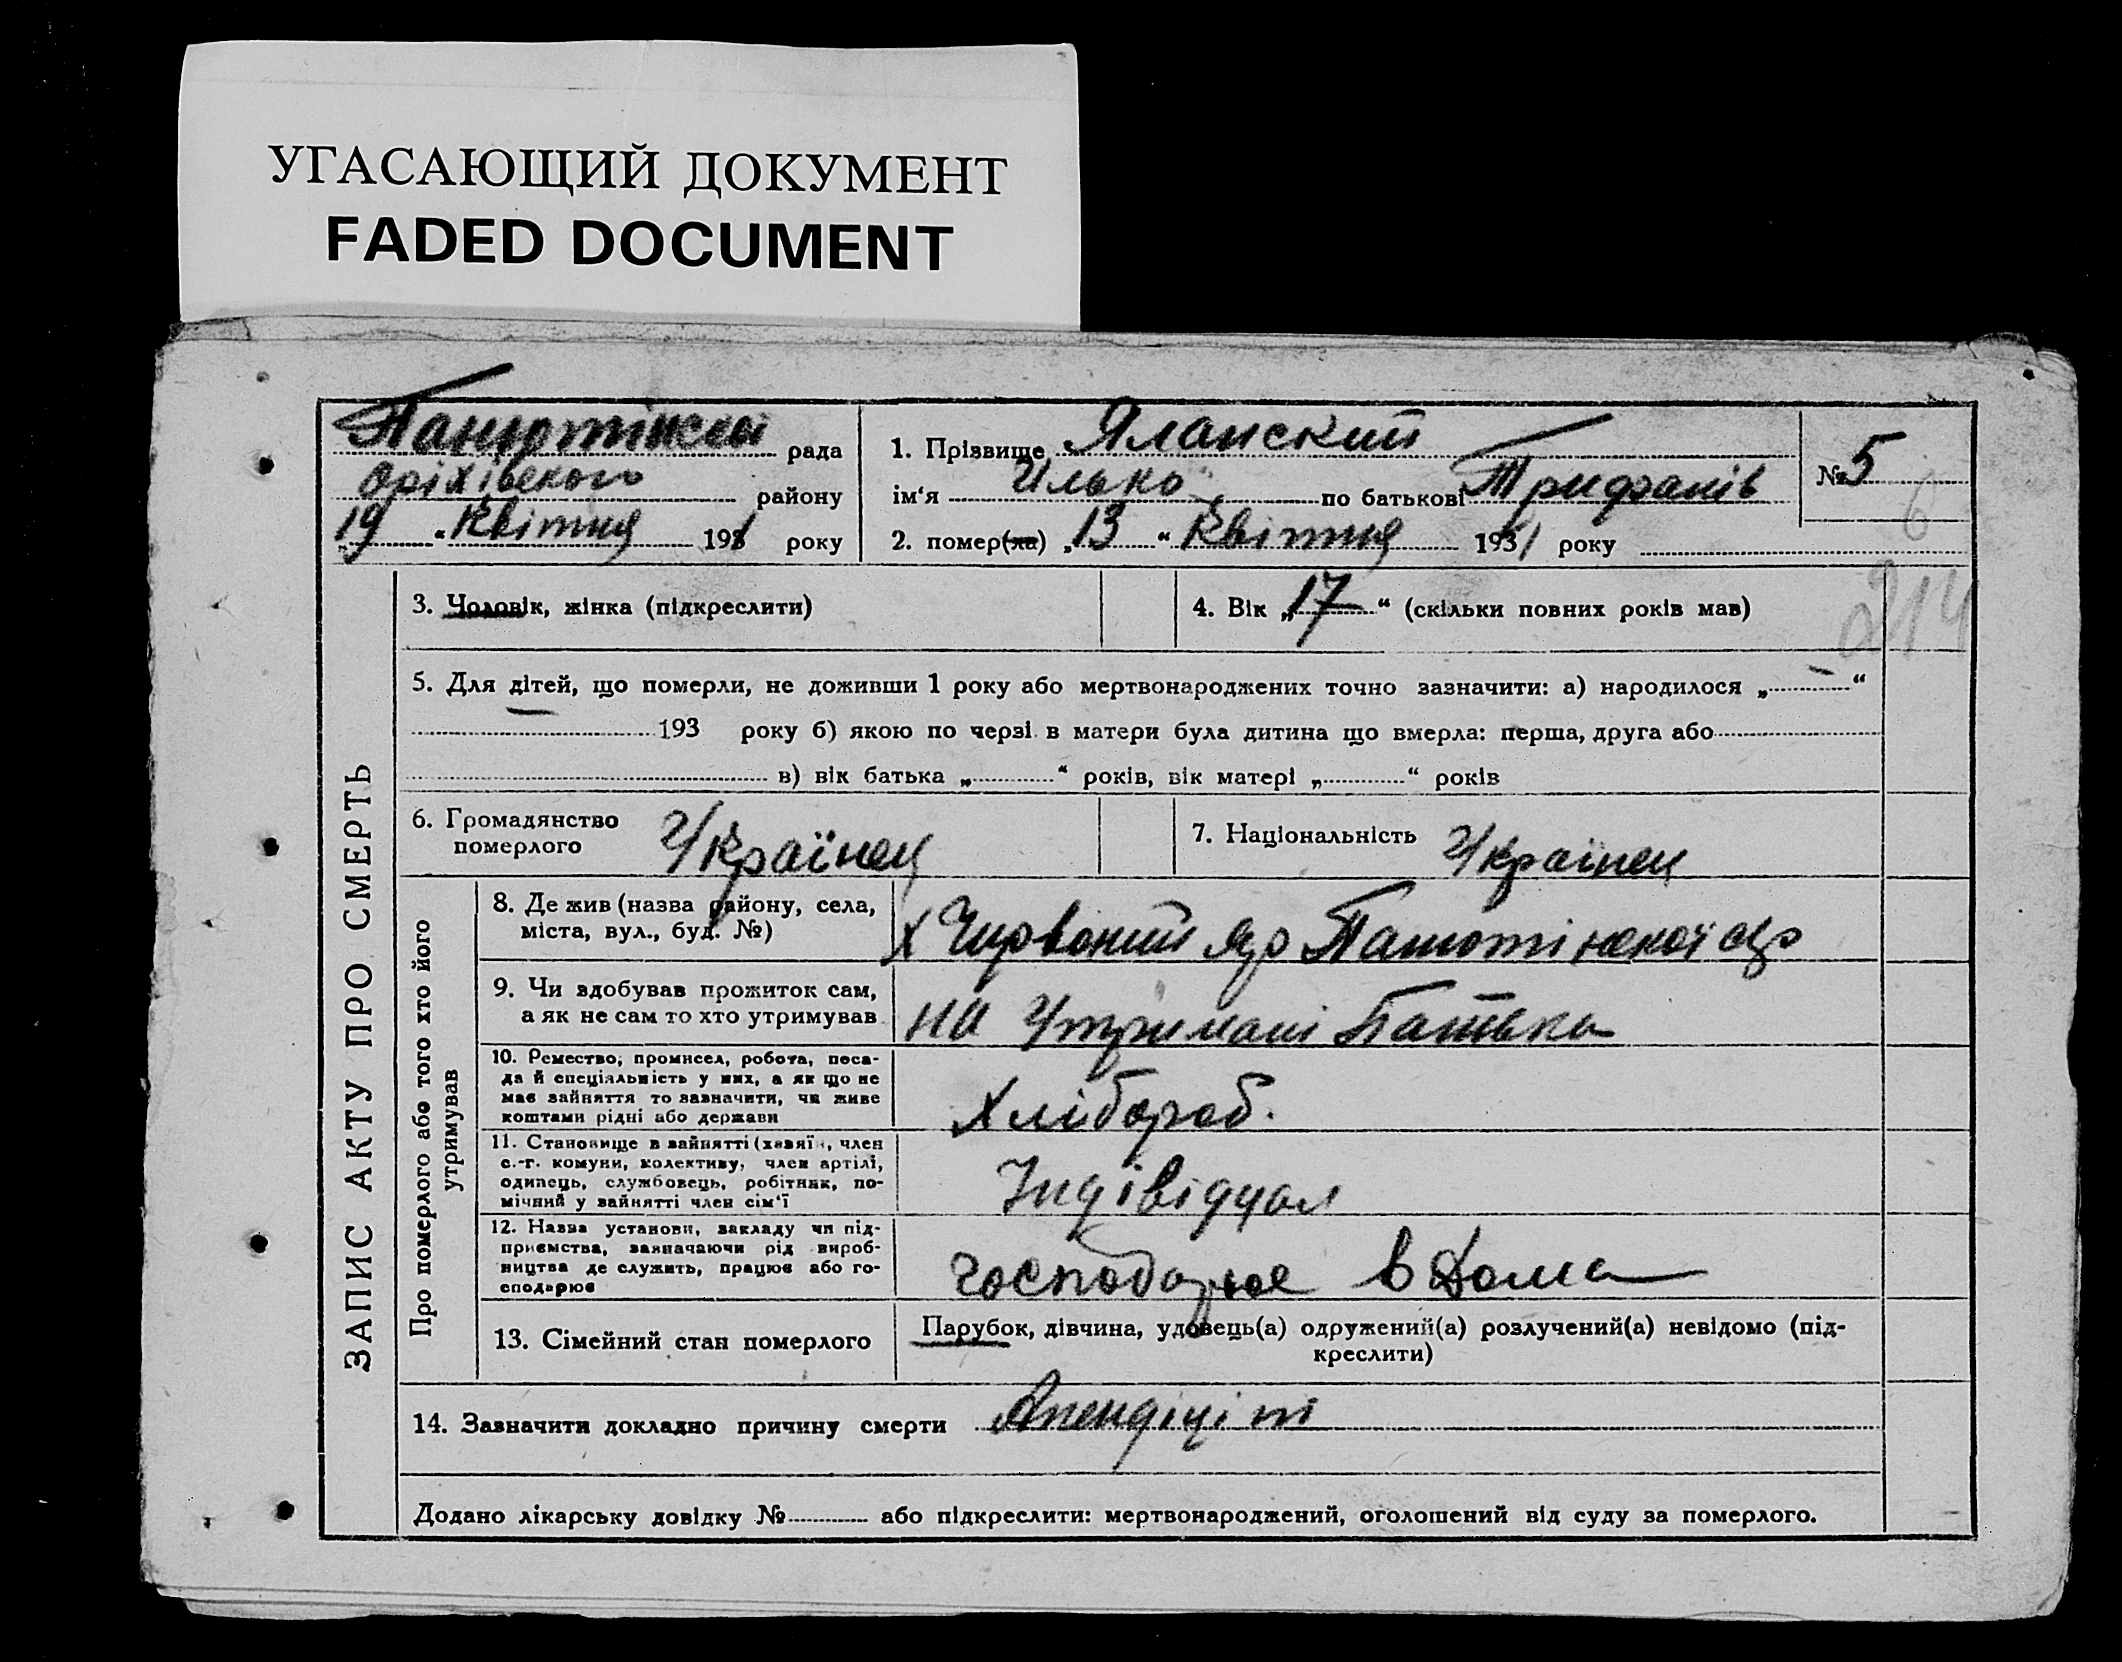 УГАСАЮЩИЙ ДОКУМЕНТ
FADED DOCUMENT
Панютінської рада
Оріхівського району
19 " Квітня 1931 року
1. Прізвище Яланский
ім'я Илько по батькові Трифанів
2. помер(ла) „13" Квітня 1931 року
№ 5
6
214
ЗАПИС АКТУ ПРО СМЕРТЬ
3. Чоловік, жінка (підкреслити)
4. Вік „17" (скільки повних років мав)
5. Для дітей, що померли, не доживши 1 року або мертвонароджених точно зазначити: а) народилося „ — "
— 193 року б) якою по черзі в матери була дитина що вмерла: перша, друга або
в) вік батька „ " років, вік матері „ " років
6. Громадянство
померлого Українец
7. Національність Українец
Про померлого або того хто його
утримував
8. Де жив (назва району, села,
міста, вул., буд. №)
х Чирвоний Яр Панютінскої с/р
9. Чи здобував прожиток сам,
а як не сам то хто утримував
на Утримані Батька
10. Ремество, промисел, робота, поса-
да й спеціяльність у них, а як що не
має зайняття то зазначити, чи живе
коштами рідні або держави
Хлібороб.
11. Становище в зайнятті (хазяїн, член
с.-г. комуни, колективу, член артілі,
одинець, службовець, робітник, по-
мічний у зайнятті член сім'ї
Індівідуал
12. Назва установи, закладу чи під-
приємства, зазначаючи рід вироб-
ництва де служить, працює або го-
сподарює
Господарює в Дома
13. Сімейний стан померлого
Парубок, дівчина, удовець(а) одружений(а) розлучений(а) невідомо (під-
креслити)
14. Зазначити докладно причину смерти Апендіціт
Додано лікарську довідку № або підкреслити: мертвонароджений, оголошений від суду за померлого.